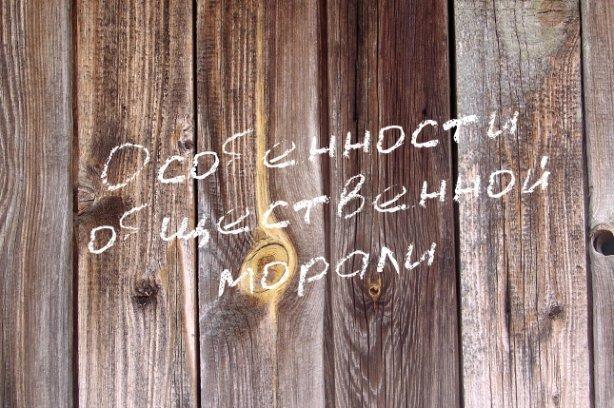 Особенности
общественной
морали